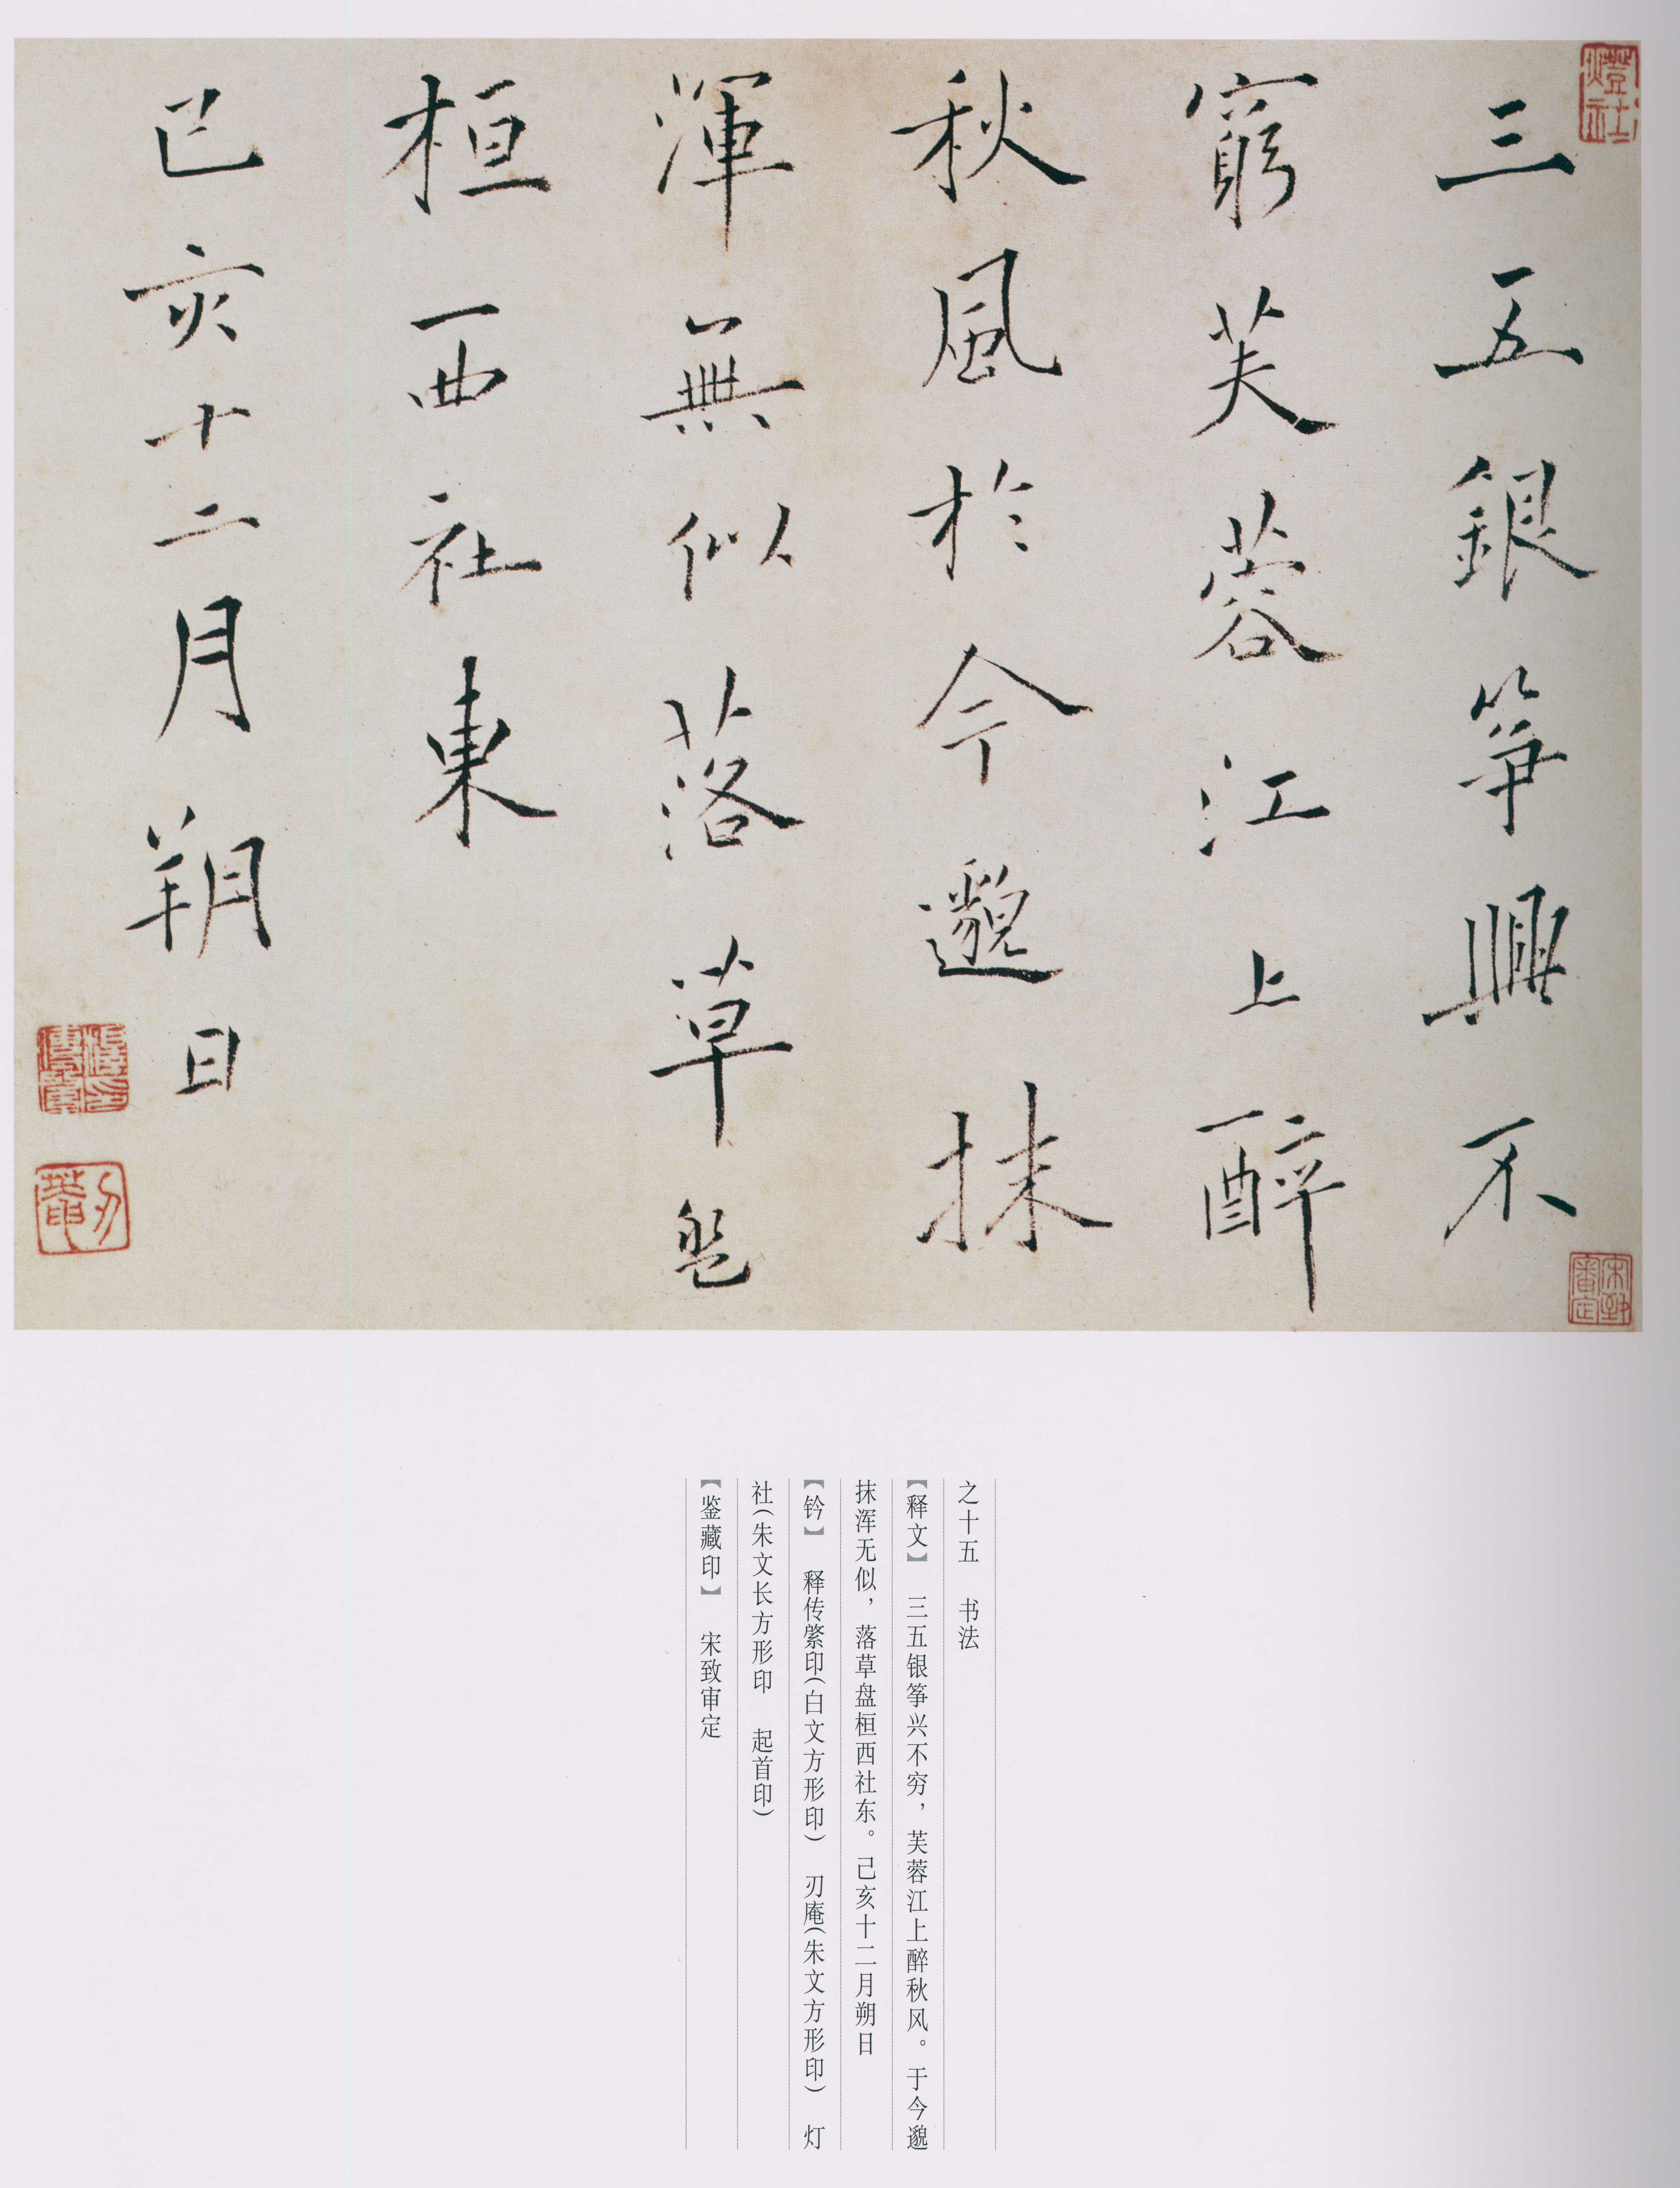 三五銀箏興不
窮芙蓉江上醉
秋風於今邈抹
渾無似落草盤
桓西社東
己亥十二月朔日
燈社
宋致審定
釋傳綮印
刃菴
之十五 书法
【释文】 三五银筝兴不穷，芙蓉江上醉秋风。于今邈
抹浑无似，落草盘桓西社东。己亥十二月朔日
【钤】 释传綮印（白文方形印） 刃庵（朱文方形印） 灯
社（朱文长方形印 起首印）
【鉴藏印】 宋致审定